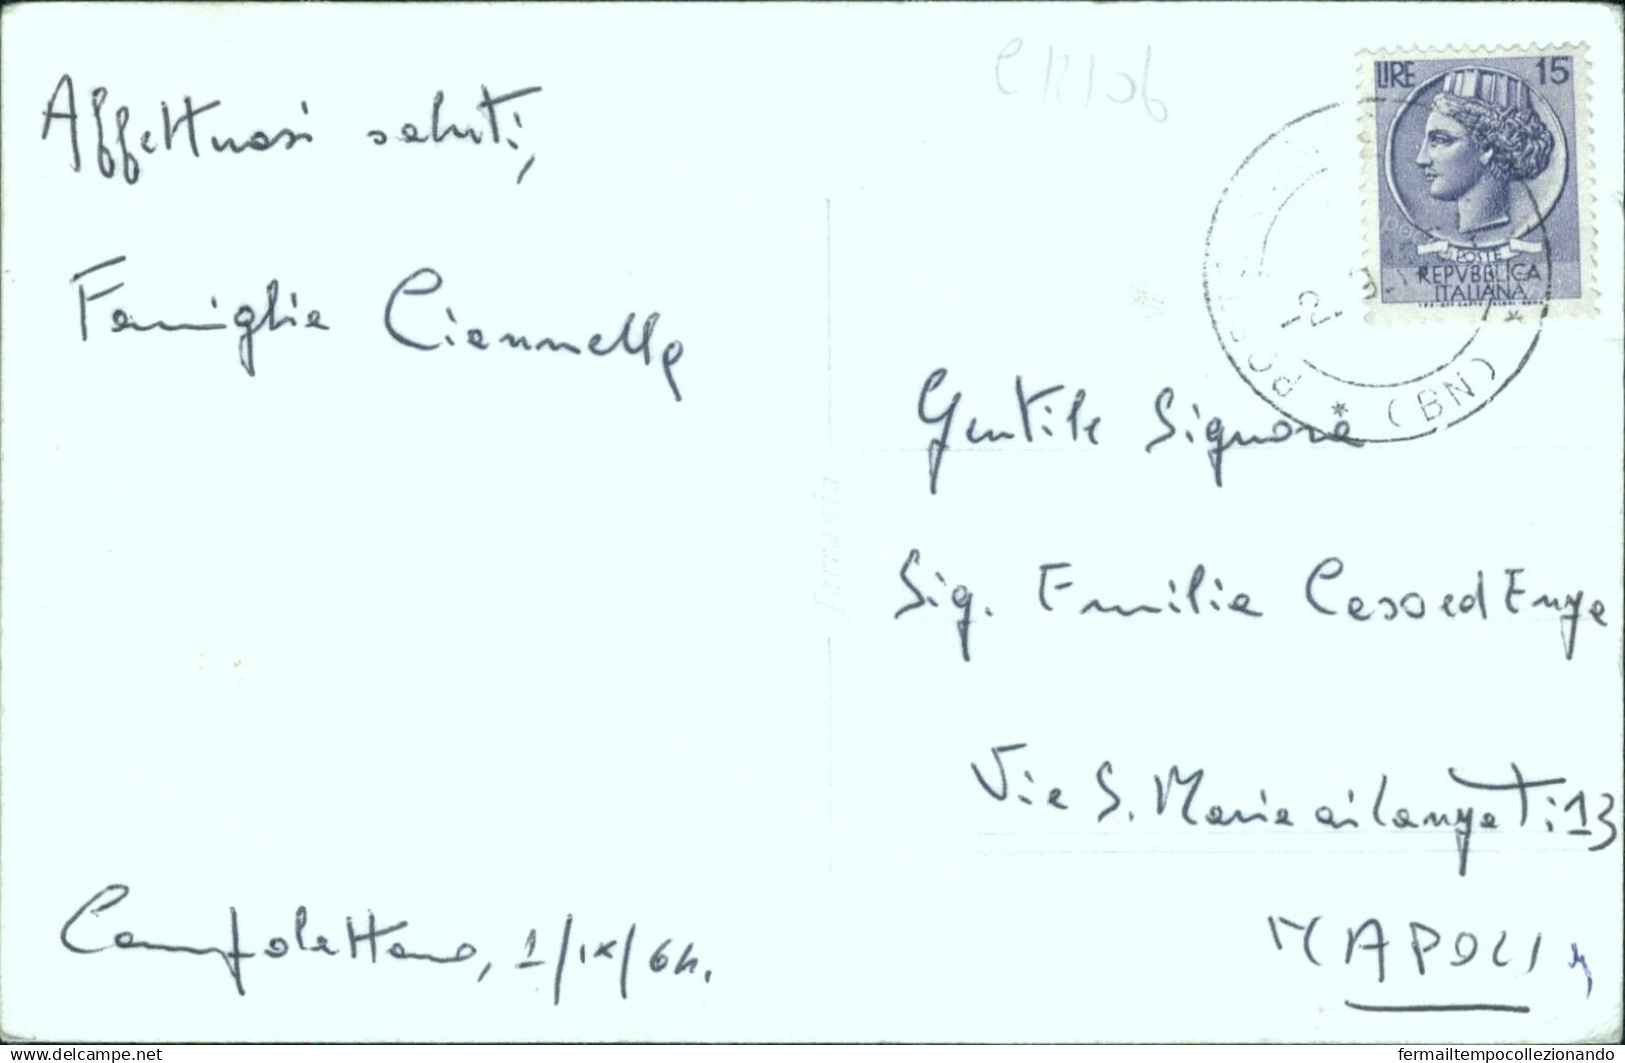 Affettuosi saluti,
Famiglia Ciannella
Campolattaro, 1/IX/64.
CR106
LIRE 15
POSTE
REPVBBLICA
ITALIANA
(BN)
ferrania
Gentile Signora
Sig. Emilia
Via S. Maria ai Lanzati 13
NAPOLI
delcampe.net
fermailtempocollezionando